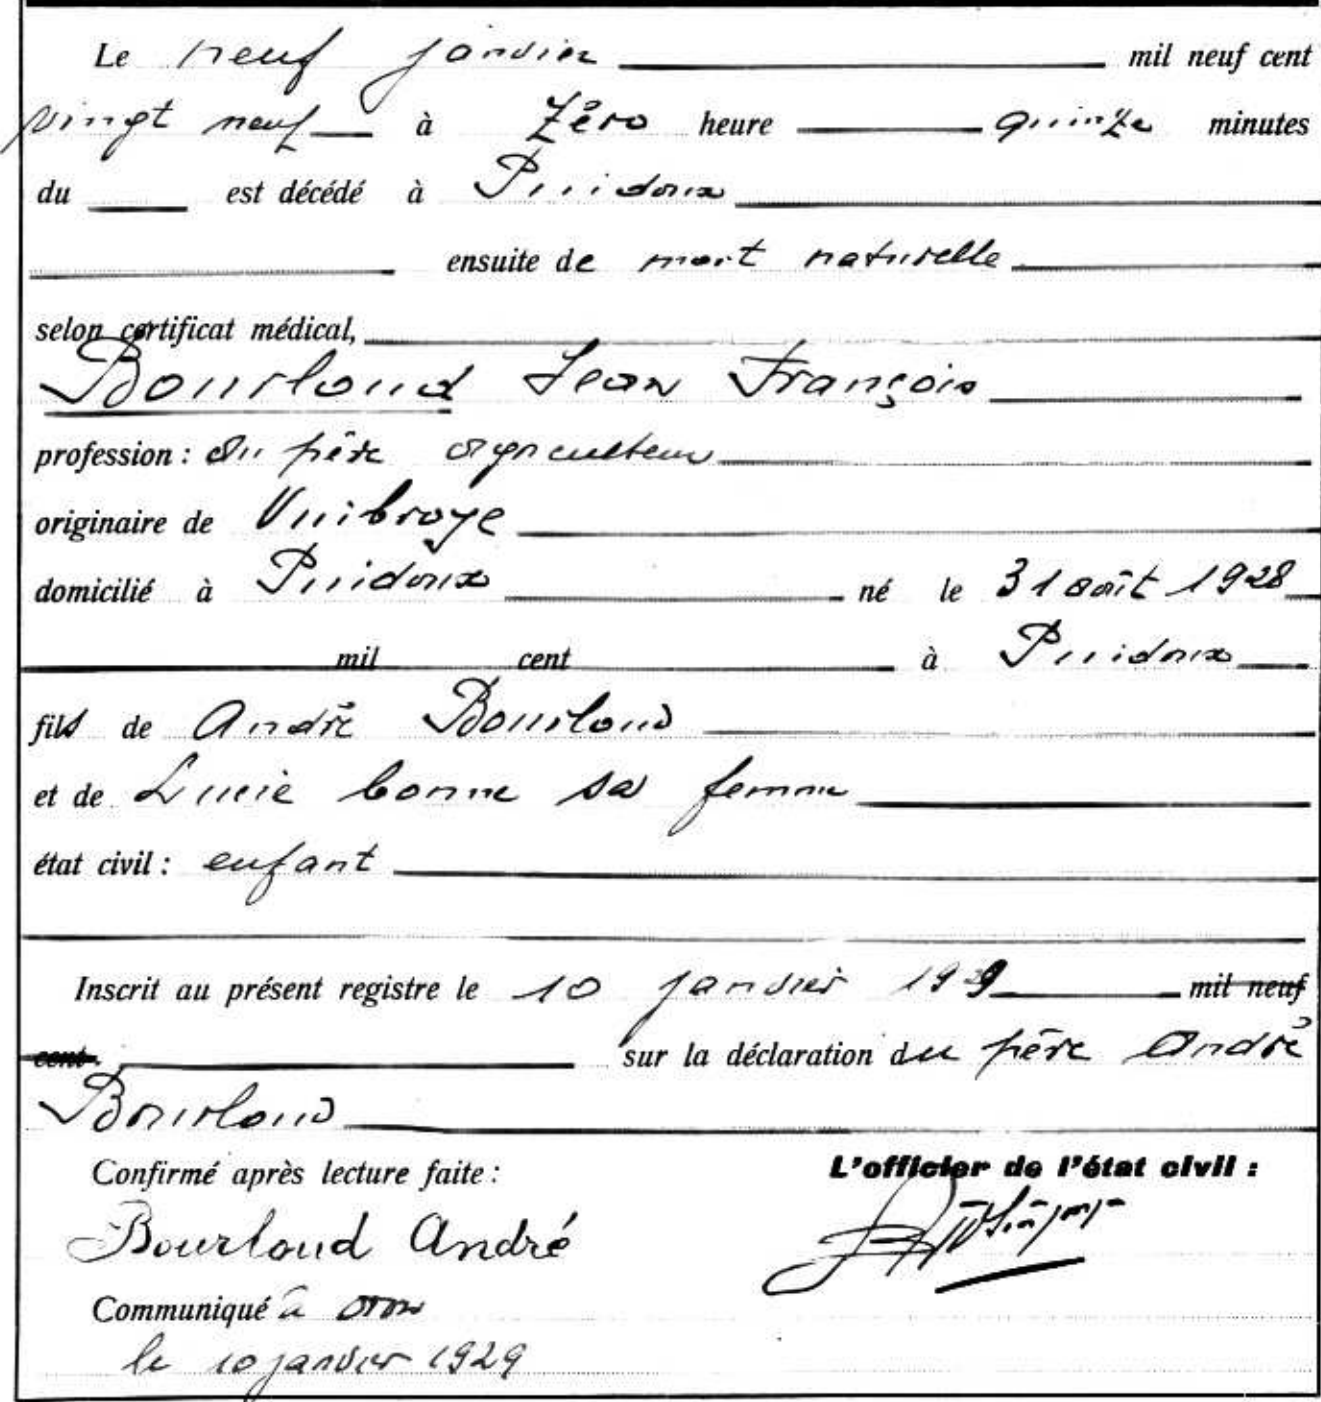 Le neuf janvier mil neuf cent
vingt neuf à Zéro heure quinze minutes
du est décédé à Puidoux
ensuite de mort naturelle
selon certificat médical,
Bourloud Jean François
profession : du père agriculteur
originaire de Vuibroye
domicilié à Puidoux né le 31 août 1928
mil cent à Puidoux
fils de André Bourloud
et de Lucie bonne sa femme
état civil : enfant
Inscrit au présent registre le 10 janvier 1929 mil neuf
cent sur la déclaration du père André
Bourloud
Confirmé après lecture faite : L'officier de l'état civil :
Bourloud André
Communiqué à Oron
le 10 janvier 1929